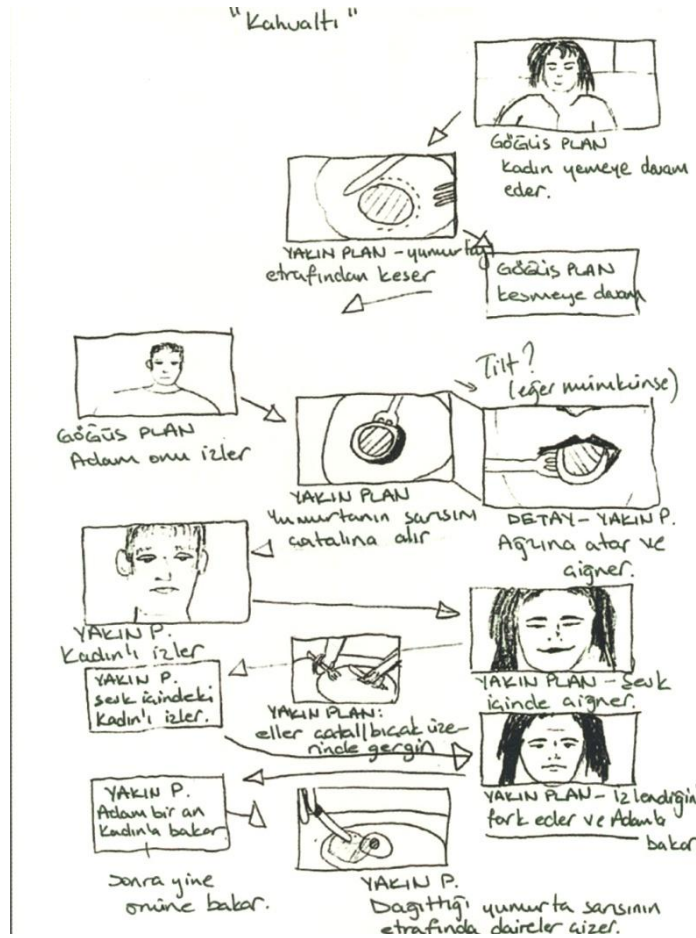 "Kahvaltı"
GÖĞÜS PLAN
kadın yemeye devam
eder.
YAKIN PLAN – yumurtayı
etrafından keser
GÖĞÜS PLAN
kesmeye devam
GÖĞÜS PLAN
Adam onu izler
YAKIN PLAN
Yumurtanın sarısını
çatalına alır
Tilt?
(eğer mümkünse)
DETAY – YAKIN P.
Ağzına atar ve
çiğner.
YAKIN P.
Kadın'ı izler
YAKIN PLAN – Şevk
içinde çiğner.
YAKIN P.
şevk içindeki
Kadın'ı izler.
YAKIN PLAN:
eller çatal/bıçak üze-
rinde gergin
YAKIN PLAN – izlendiğini
fark eder ve Adam'a
bakar
YAKIN P.
Adam bir an
Kadın'a bakar
Sonra yine
önüne bakar.
YAKIN P.
Dağıttığı yumurta sarısının
etrafında daireler çizer.